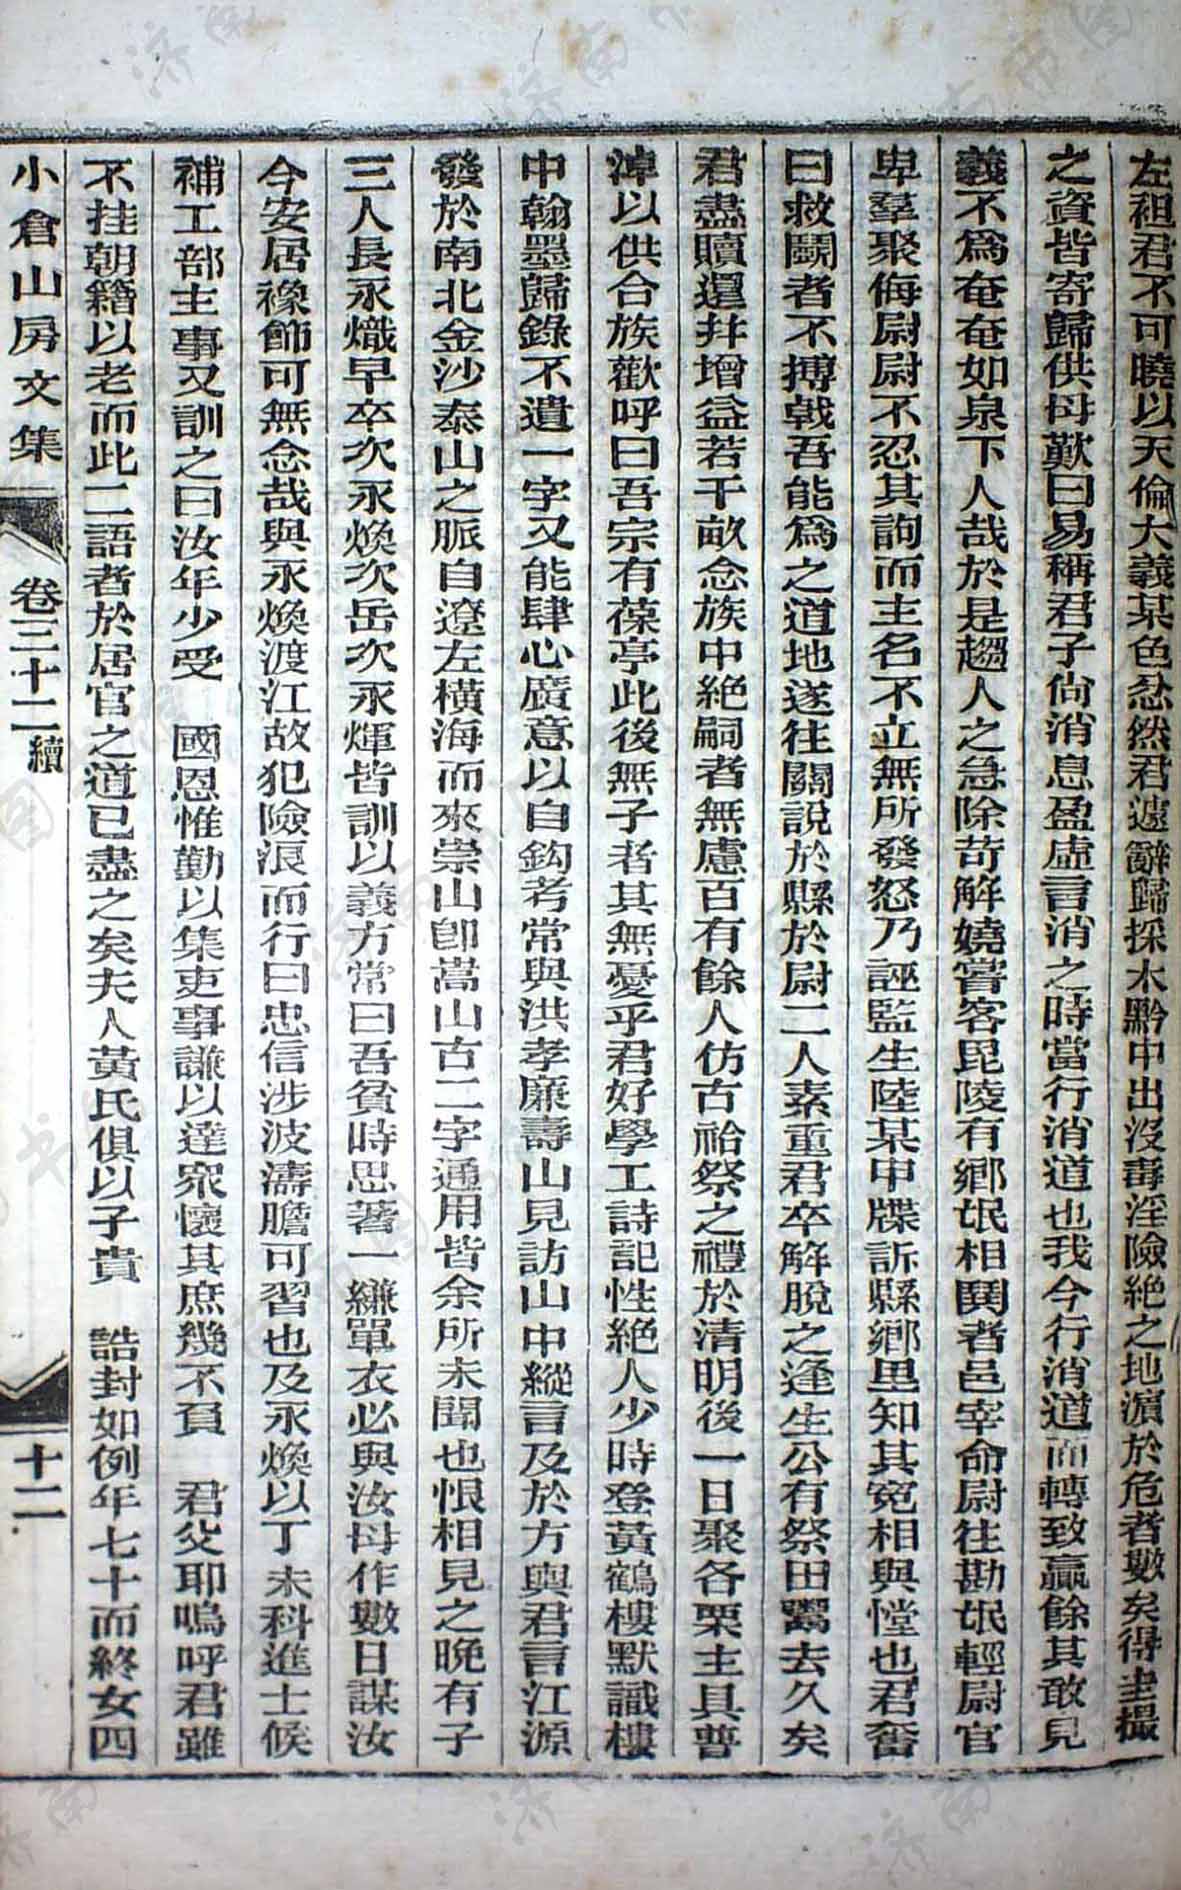 左袒君不可曉以天倫大義某色忿然君遽辭歸採木黔中出沒毒淫險絕之地濵於危者數矣得圭撮
之資皆寄歸供母歎曰易稱君子尙消息盈虛言消之時當行消道也我今行消道而轉致贏餘其敢見
義不爲奄奄如泉下人哉於是趨人之急除苛解嬈嘗客毘陵有鄉氓相鬪者邑宰命尉往勘氓輕尉官
卑羣聚侮尉尉不忍其訽而主名不立無所發怒乃誣監生陸某甲牒訴縣鄉里知其寃相與憆也君奮
曰救鬬者不搏戟吾能爲之道地遂往關說於縣於尉二人素重君卒解脫之逢生公有祭田鬻去久矣
君盡贖還幷增益若干畝念族中絕嗣者無慮百有餘人仿古祫祭之禮於清明後一日聚各栗主具普
淖以供合族歡呼曰吾宗有葆亭此後無子者其無憂乎君好學工詩記性絕人少時登黃鶴樓默識樓
中翰墨歸錄不遺一字又能肆心廣意以自鈎考常與洪孝廉壽山見訪山中縱言及於方輿君言江源
發於南北金沙泰山之脈自遼左橫海而來崇山卽嵩山古二字通用皆余所未聞也恨相見之晚有子
三人長永熾早卒次永煥次岳次永煇皆訓以義方常曰吾貧時思著一縑單衣必與汝母作數日謀汝
今安居襐飾可無念哉與永煥渡江故犯險浪而行曰忠信涉波濤膽可習也及永煥以丁未科進士候
補工部主事又訓之曰汝年少受 國恩惟勤以集吏事謙以達衆懷其庶幾不負 君父耶嗚呼君雖
不挂朝籍以老而此二語者於居官之道已盡之矣夫人黃氏俱以子貴 誥封如例年七十而終女四
小倉山房文集 卷三十二續 十二